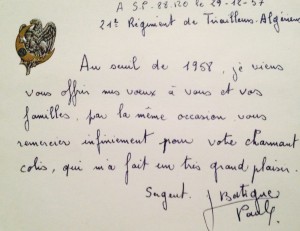 A S.P. 88.120 le 29-12-57
21e Régiment de Tirailleurs Algériens
Au seuil de 1958, je viens
vous offrir mes voeux à vous et vos
familles, par la même occasion vous
remercier infiniment pour votre charmant
colis, qui m'a fait un très grand plaisir.
Sergent.
Paul